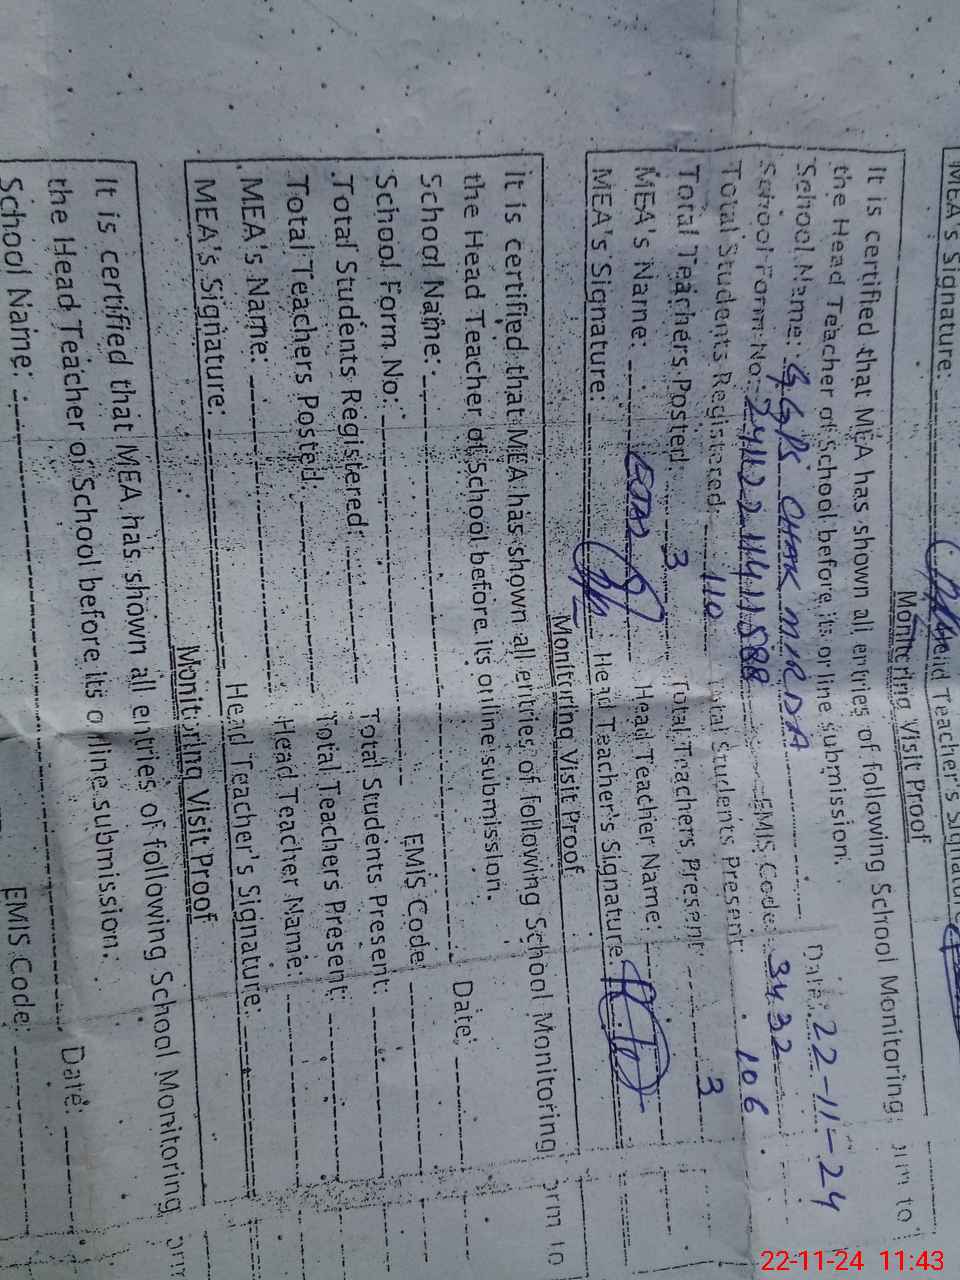 MEA's Signature: Head Teacher's Signature
Monitoring Visit Proof
It is certified that MEA has shown all entries of following School Monitoring orm to
the Head Teacher of School before its online submission.
School Name: GGPS CHAK MIRDA Date: 22-11-24
School Form No: EMIS Code: 3432
Total Students Registered 110 Total Students Present 106
Total Teachers Posted: 3 Total Teachers Present 3
MEA's Name: Head Teacher Name:
MEA's Signature: Head Teacher's Signature:
Monitoring Visit Proof
It is certified that MEA has shown all entries of following School Monitoring orm to
the Head Teacher of School before its online submission.
School Name: Date:
School Form No: EMIS Code:
Total Students Registered Total Students Present:
Total Teachers Posted: Total Teachers Present:
MEA's Name: Head Teacher Name:
MEA's Signature: Head Teacher's Signature:
Monitoring Visit Proof
It is certified that MEA has shown all entries of following School Monitoring orm
the Head Teacher of School before its online submission.
School Name: Date:
EMIS Code:
22-11-24 11:43